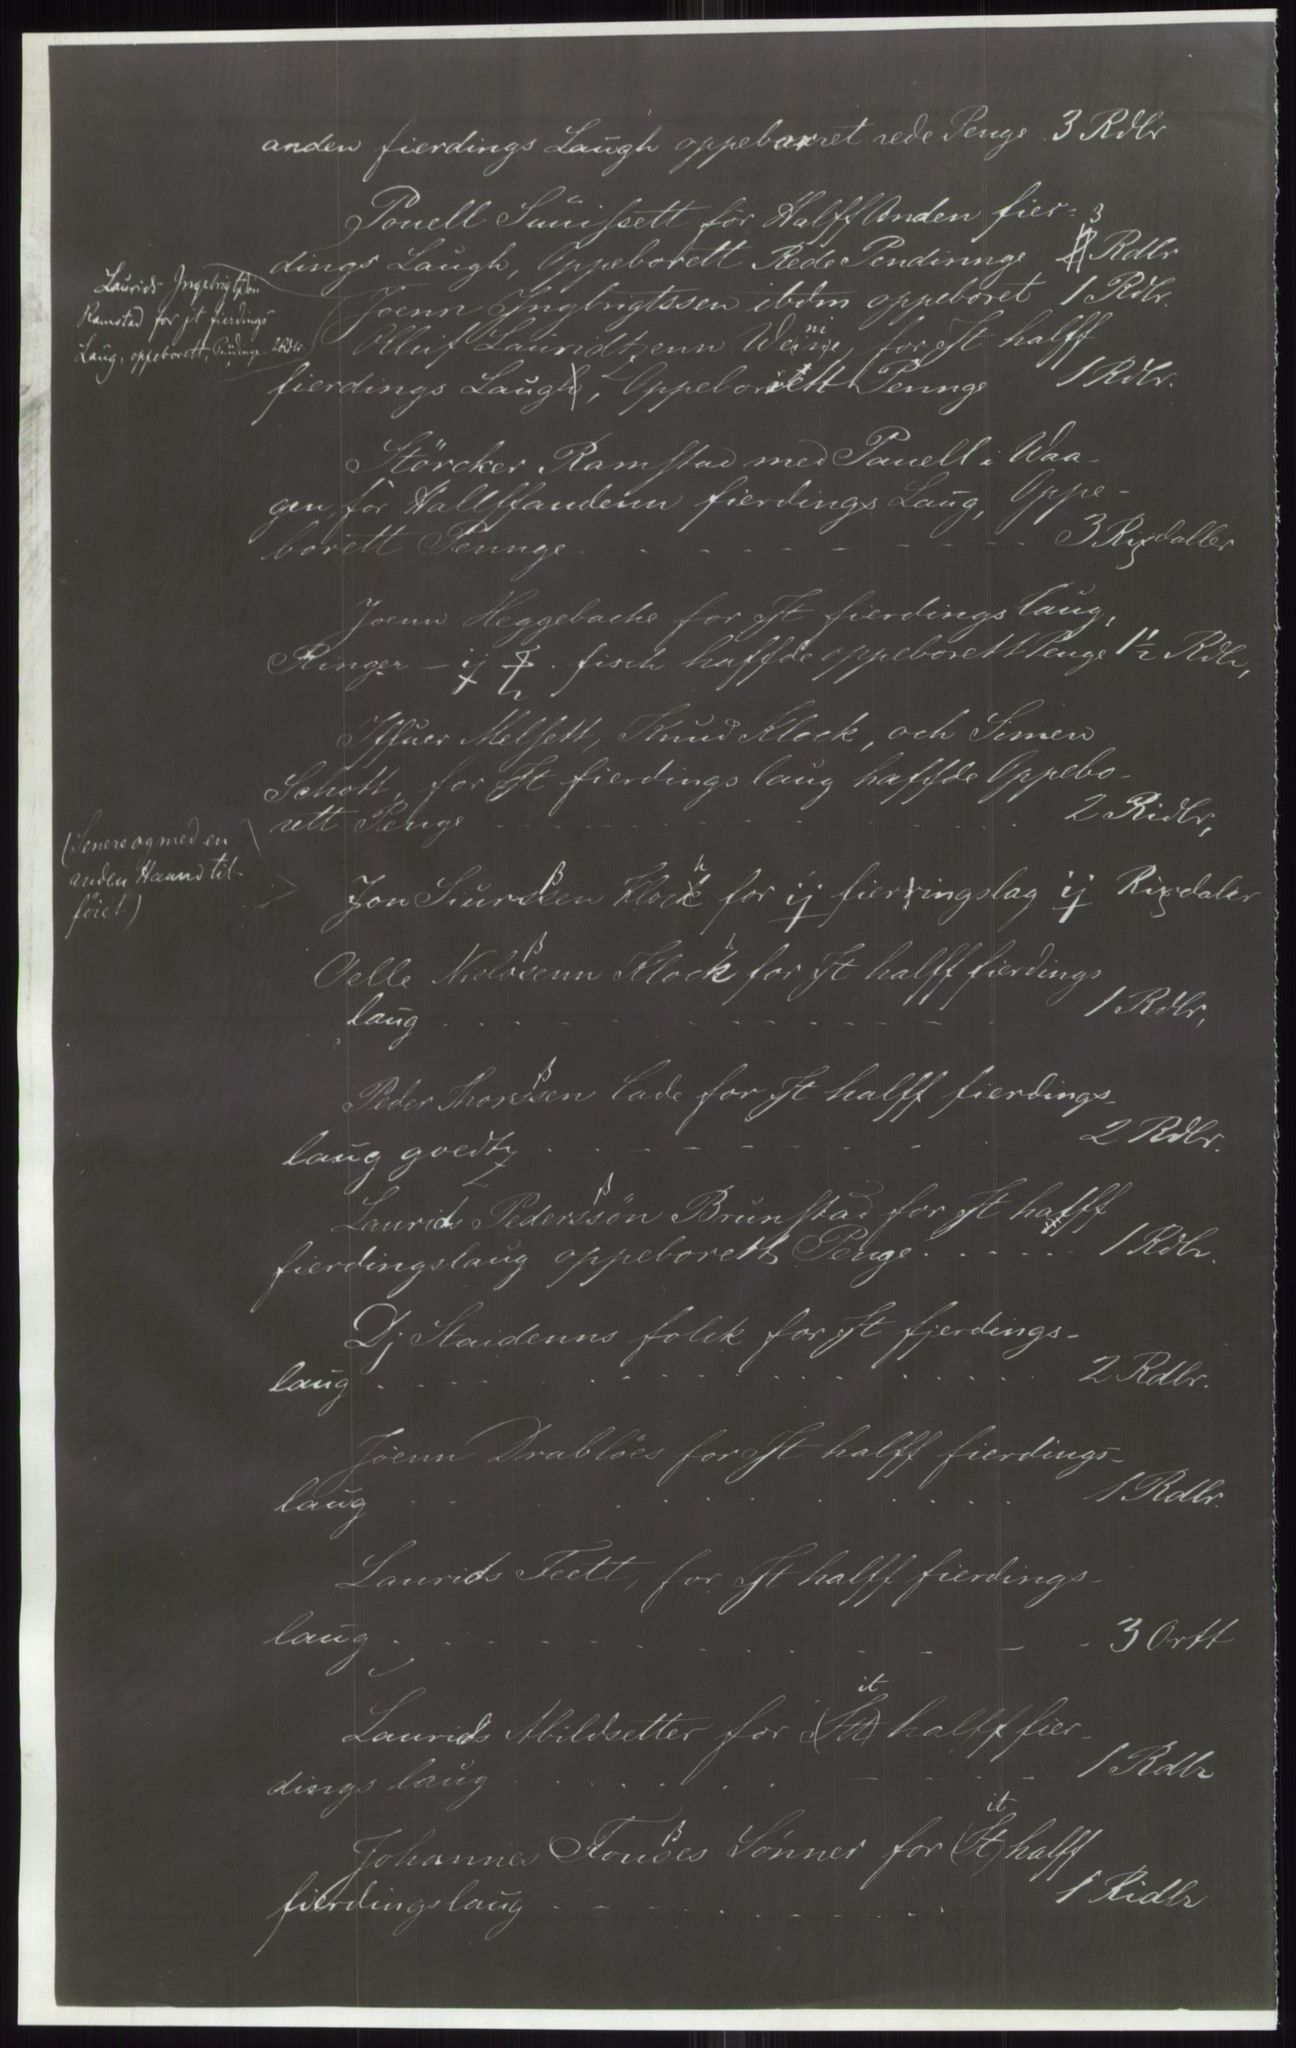 anden fierdings Laugh oppebaaret rede Penge 3 Rdlr
Pouell Suuissett for Halff Anden fier-
dings Laugh, Oppeborett Rede Pendinnge 3 Rdlr
Laurids Ingebrigtsøn
Ramstad for it fierdings
Laug, oppeborett, Pndinge 2 Rdlr
Joenn Ingbrigtssen ibdm oppeboret 1 Rdlr.
Olluf Lauridtzenn for It halff
fierdings Laugh, Oppeborett Pennge 1 Rdlr.
Störcker Ramstad med Pouell i Waa-
gen for Hallffandenn fierdings Laug, Oppe-
borett Pennge 3 Rixdaller
Joenn Heggebache for It fierdings laug,
Penger ij fisch haffde oppeborett Penge 1½ Rdlr,
Iffuer Melsett, Knud Klock, och Simen
Schott, for It fierdings laug haffde Oppebo-
rett Penge 2 Ridlr,
(Senere og med en
anden Haand til-
føiet)
Jon Siurssen Klock for ij fierringslag ij Rixdaler
Oelle Nielssenn Klock for It halff fierdings
laug 1 Rdlr,
Peder Thorssen Lade for It halff fierdings-
laug goedtz 2 Rdlr.
Laurids Pederssøn Brunstad for It halff
fierdingslaug oppeborett Penge 1 Rdlr.
Dj Staidenns folck for It fjerdings-
laug 2 Rdlr.
Joenn Drabløes for It halff fierdings-
laug 1 Rdlr.
Laurids Feett, for It halff fierdings-
laug 3 Ortt
it
Laurids Abildsetter for (It) halff fier-
dings laug 1 Rdlr
it
Johannes Fousses Sønner for (It) halff
fierdingslaug 1 Ridlr